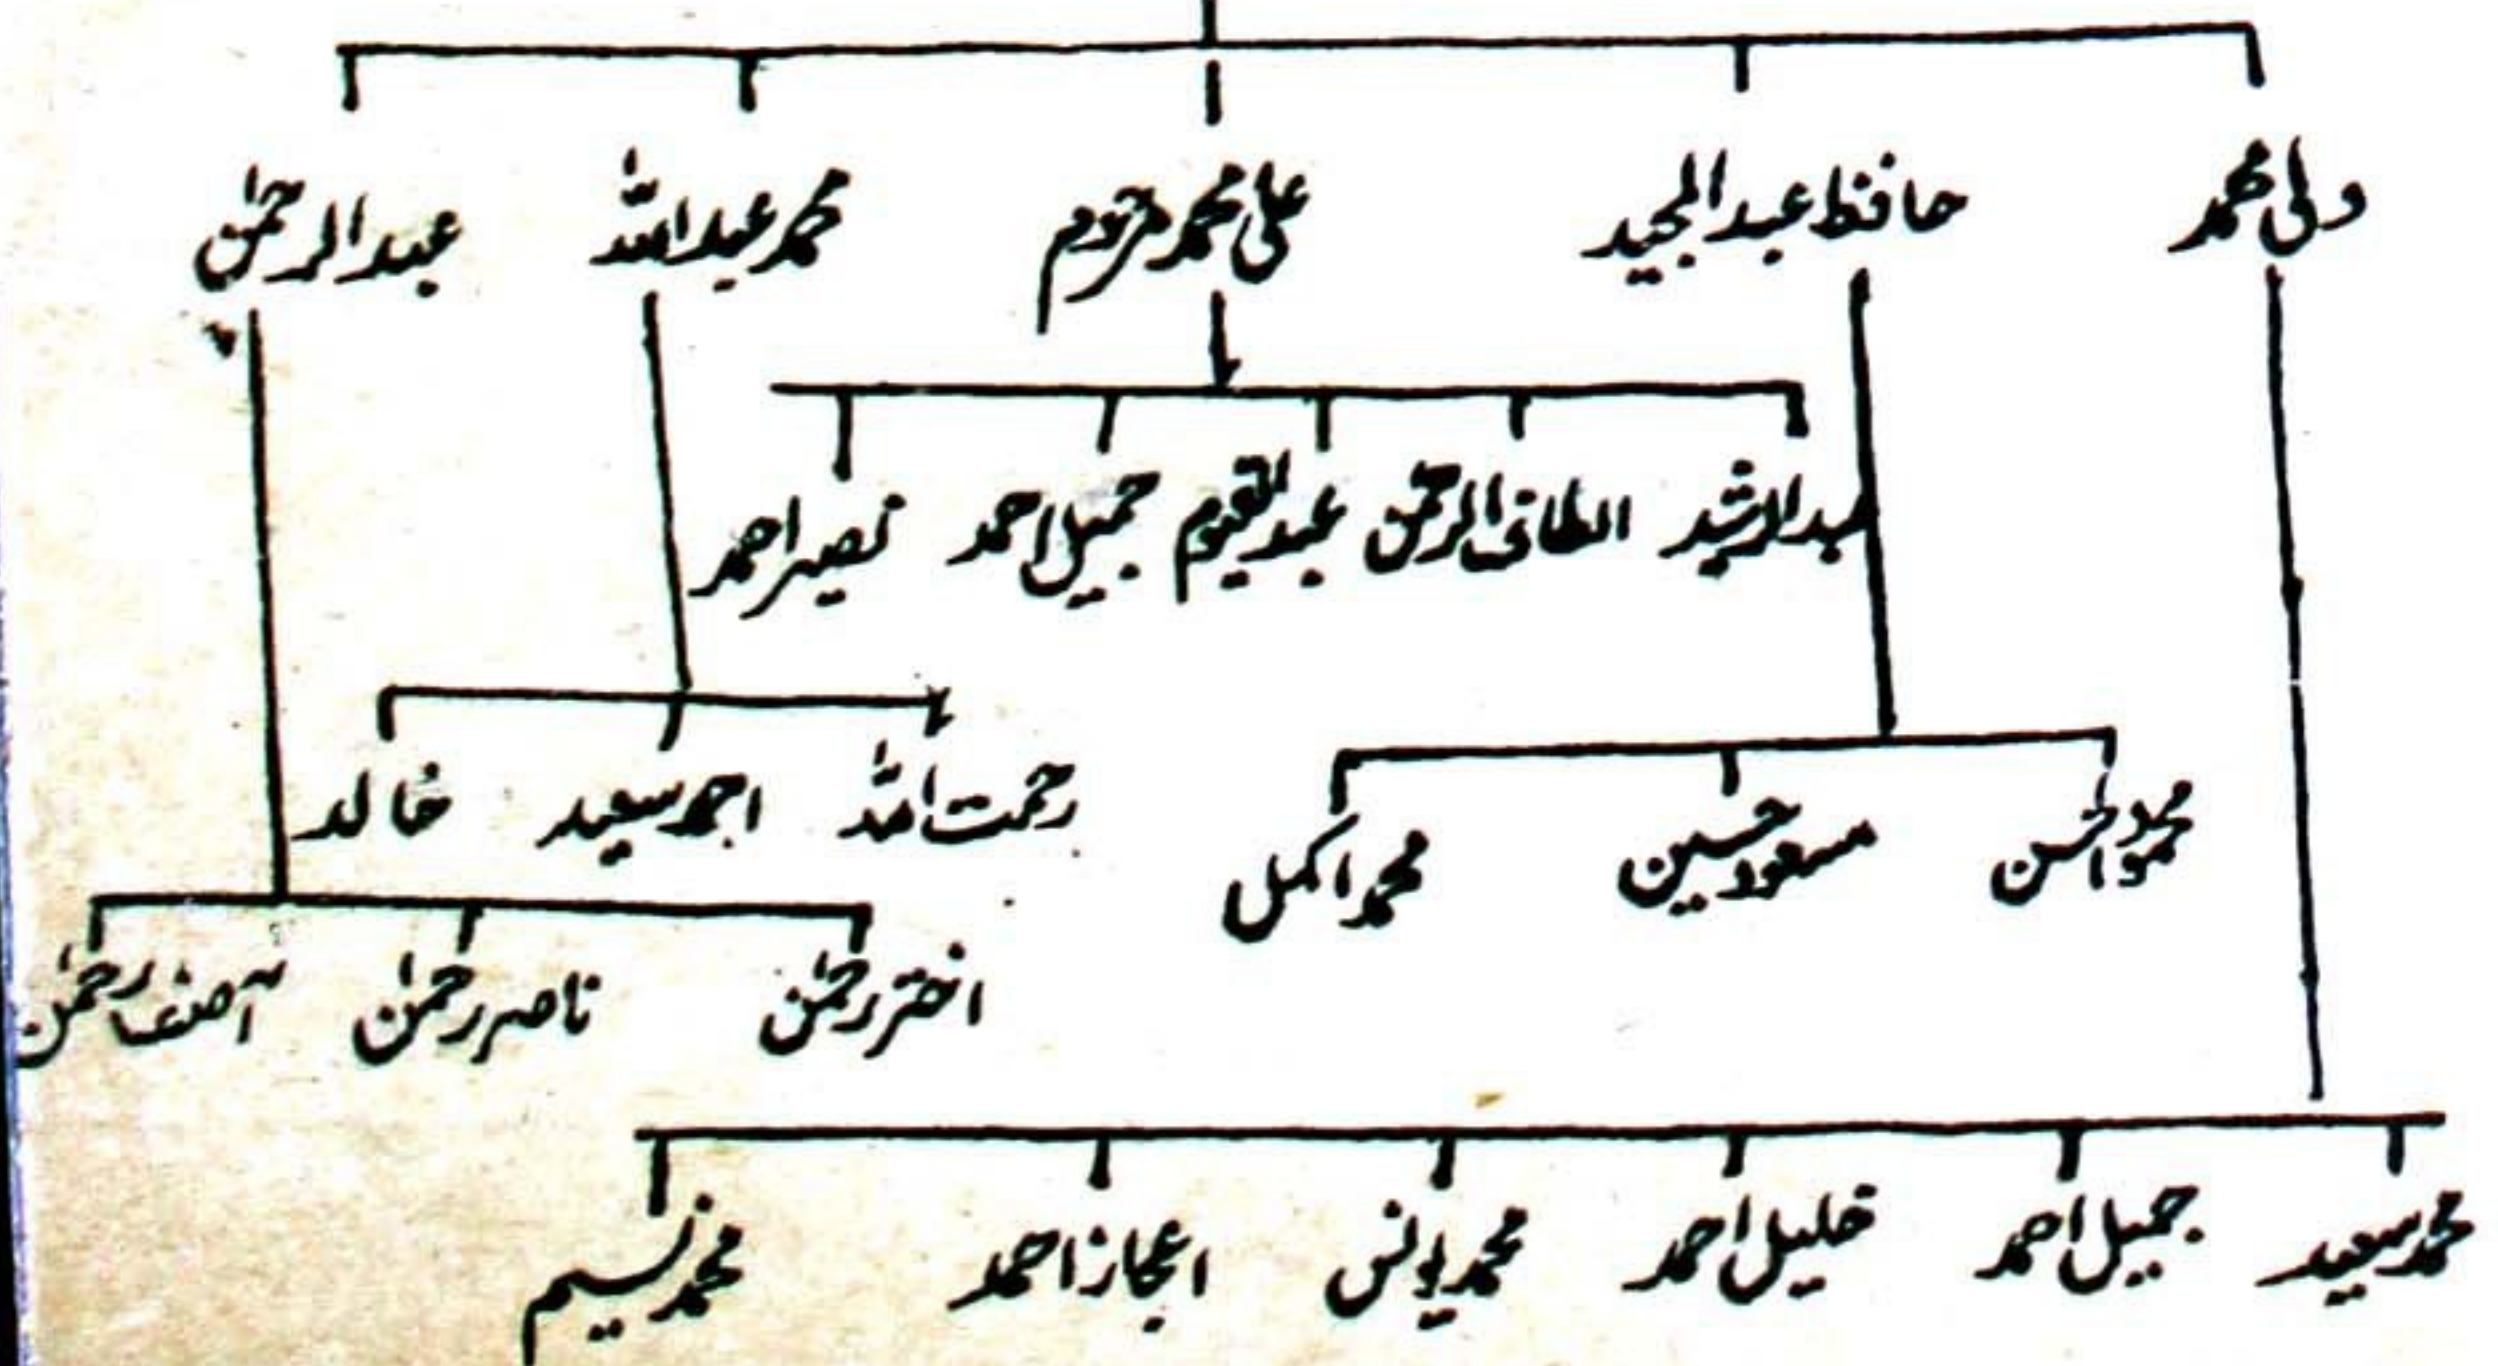 ولی محمد حافظ عبدالمجید علی محمد مرحوم محمد عبداللہ عبدالرحمٰن
عبدالرشید الطاف الرحمٰن عبدالقیوم جمیل احمد نصیر احمد
رحمت اللہ احمد سعید خالد
محمود الحسن مسعود حسین محمد اکمل
اختر رحمٰن ناصر رحمٰن آصف رحمٰن
محمد سعید جمیل احمد خلیل احمد محمد یونس اعجاز احمد محمد نسیم